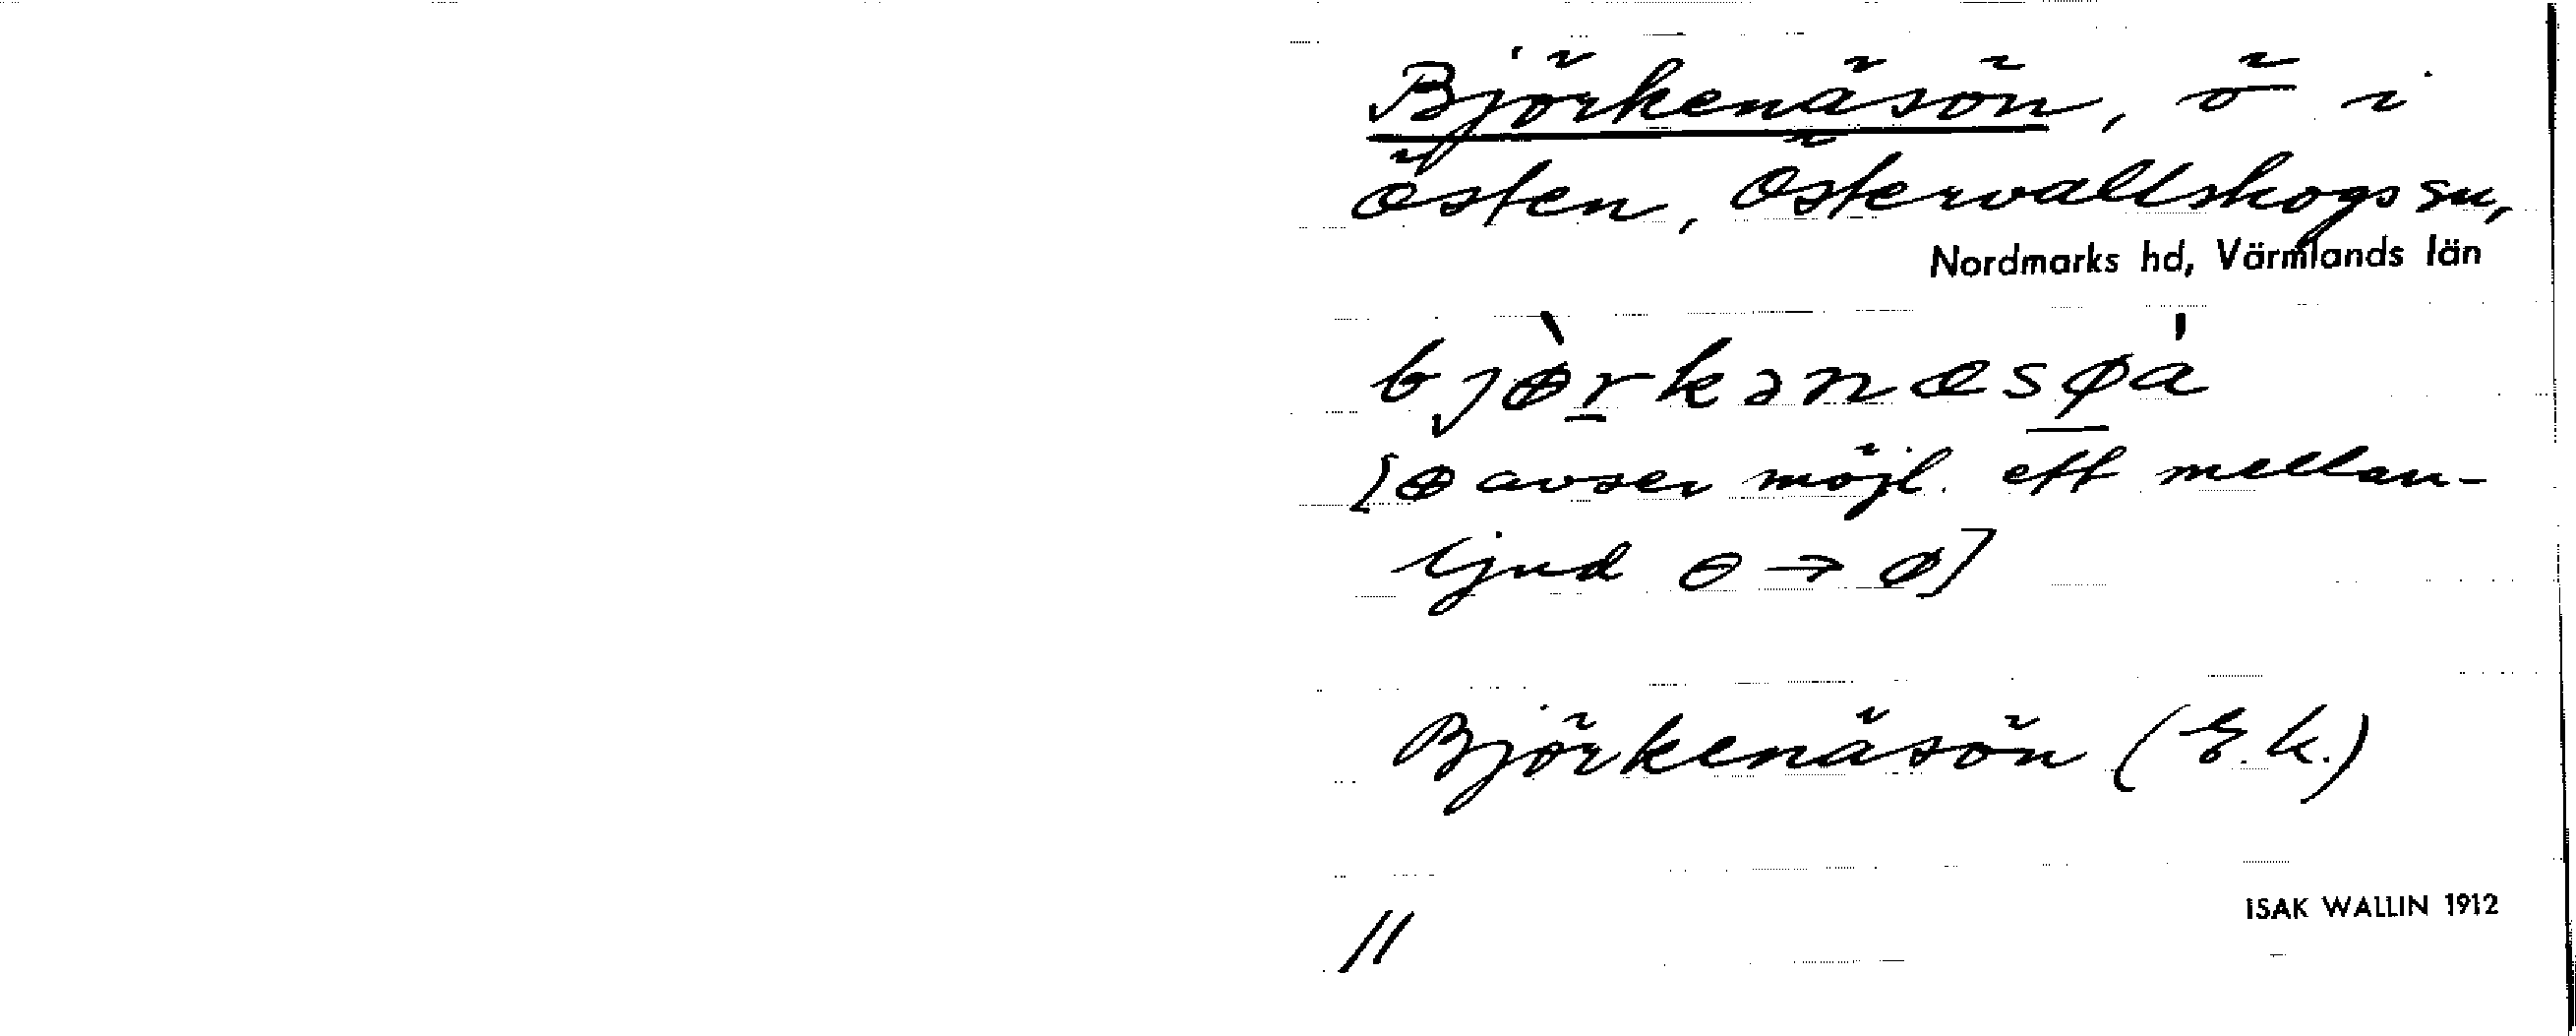 Björkenäsön, ö i
Östen, Östervallskogs sn,
Nordmarks hd, Värmlands län
bjɵ̀rkənæsøa̍
[ɵ avser möjl. ett mellan-
ljud ɵ → ø]
Björkenäsön (E.k.)
ISAK WALLIN 1912
11